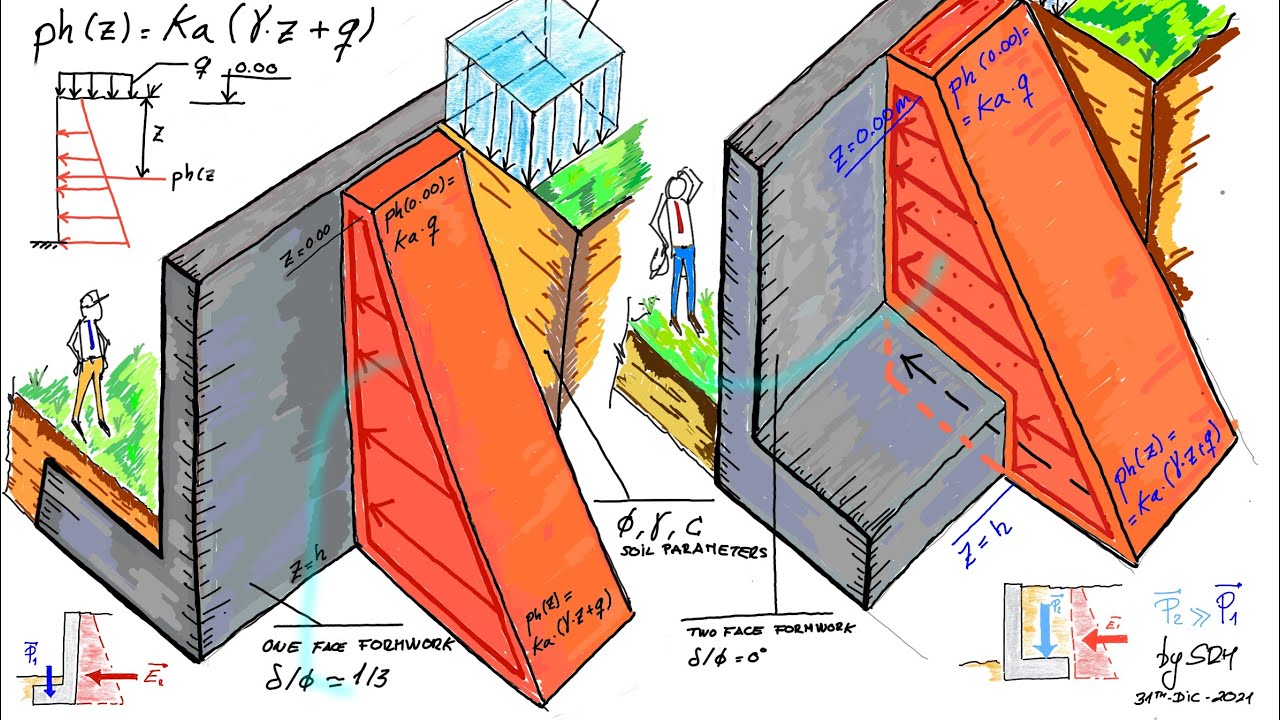 ph(z) = Ka (γ·z + q)
q
0.00
z
ph(z
ph(0.00)=
Ka·q
z=0.00
z=h
ph(z)=
Ka·(γ·z+q)
ONE FACE FORMWORK
δ/φ ≃ 1/3
P1
ϕ, γ, C
SOIL PARAMETERS
ph(0.00)=
= Ka·q
z=0.00m
ph(z)=
=Ka·(γ·z+q)
z=h
TWO FACE FORMWORK
δ/φ = 0°
P2
E1
P2 >> P1
by SRH
31TH-DIC-2021